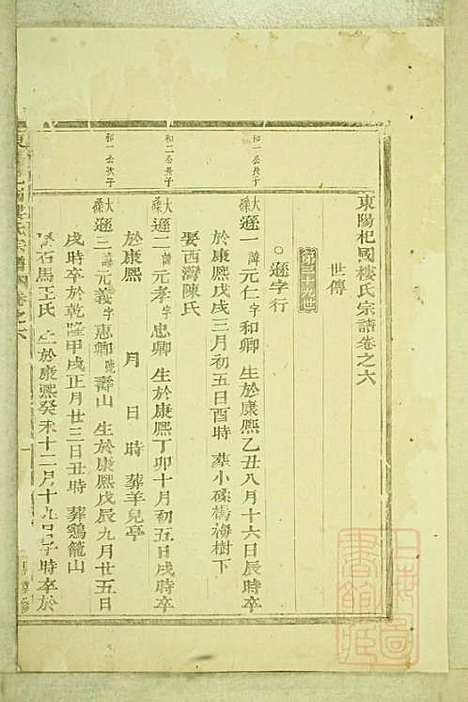 東陽杞國樓氏宗譜卷之六
世傳
○遜字行
和一公長子
大房 遜一 諱元仁字和卿 生於康熙乙丑八月十六日辰時卒
於康熙戊戌三月初五日酉時 葬小磜橋梅樹下
娶西灣陳氏
和二公長子
大 遜二 諱元孝字忠卿 生於康熙丁卯十月初五日戌時卒
於康熙 月 日 時 葬羊兒亭
和一公次子
大 遜三 諱元義字惠卿 壽山 生於康熙戊辰九月廿五日
戌時卒於乾隆甲戌正月廿三日丑時 葬鷄籠山
石馬王氏 生於康熙癸未十二月十九日 時卒於
宗譜 卷之六